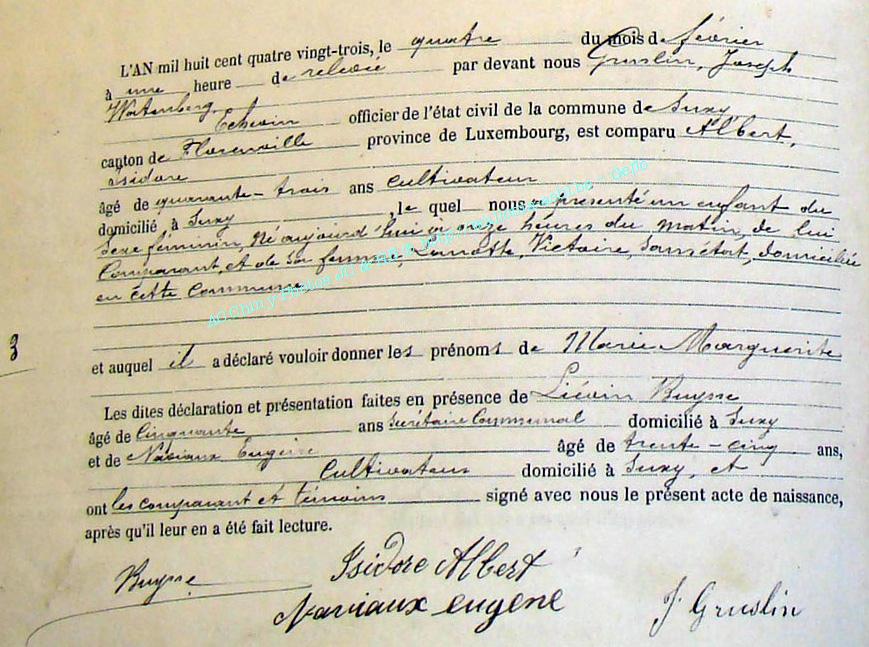 L'AN mil huit cent quatre vingt-trois, le quatre du mois de février
à une heure de relevée par devant nous Gruslin, Joseph
Echevin officier de l'état civil de la commune de Suxy
canton de Florenville province de Luxembourg, est comparu Albert,
isidore
âgé de quarante-trois ans cultivateur
domicilié à Suxy, le quel nous a présenté un enfant du
sexe féminin, Né aujourd'hui à onze heures du matin, de lui
Comparant, et de sa femme, Lamotte, Victoire, sans état, domiciliée
en cette Commune
3
et auquel il a déclaré vouloir donner les prénoms de Marie Marguerite
Les dites déclaration et présentation faites en présence de Liévin Buysse
âgé de Cinquante ans Secrétaire Communal domicilié à Suxy
et de Naviaux Eugène âgé de trente-cinq ans,
Cultivateur domicilié à Suxy, et
ont les comparant et témoins signé avec nous le présent acte de naissance,
après qu'il leur en a été fait lecture.
Buysse
Isidore Albert
Naviaux eugene
J Gruslin